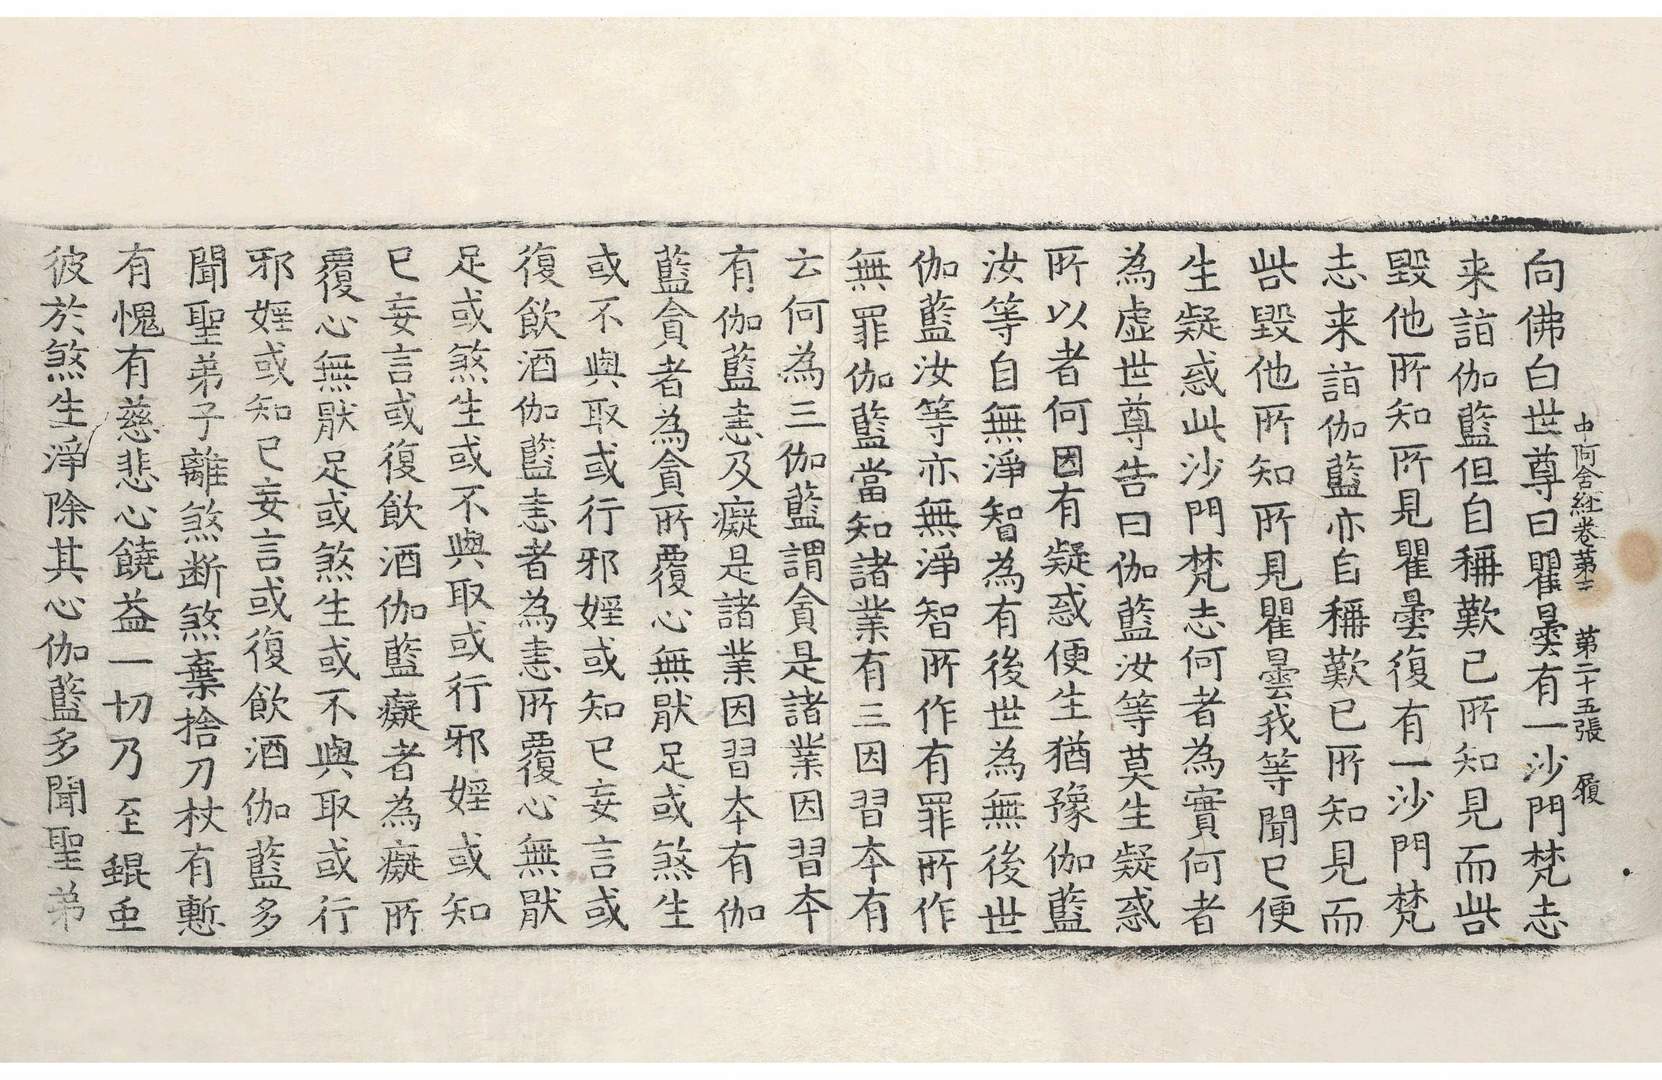 中阿含經卷第三 第二十五張 履
向佛白世尊曰瞿曇有一沙門梵志
来詣伽藍但自稱歎己所知見而呰
毀他所知所見瞿曇復有一沙門梵
志来詣伽藍亦自稱歎已所知見而
呰毀他所知所見瞿曇我等聞已便
生疑惑此沙門梵志何者為實何者
為虛世尊告曰伽藍汝等莫生疑惑
所以者何因有疑惑便生猶豫伽藍
汝等自無淨智為有後世為無後世
伽藍汝等亦無淨智所作有罪所作
無罪伽藍當知諸業有三因習夲有
云何為三伽藍謂貪是諸業因習夲
有伽藍恚及癡是諸業因習夲有伽
藍貪者為貪所覆心無猒足或煞生
或不與取或行邪婬或知已妄言或
復飲酒伽藍恚者為恚所覆心無猒
足或煞生或不與取或行邪婬或知
已妄言或復飲酒伽藍癡者為癡所
覆心無猒足或煞生或不與取或行
邪婬或知已妄言或復飲酒伽藍多
聞聖弟子離煞断煞棄捨刀杖有慙
有愧有慈悲心饒益一切乃至蜫虫
彼於煞生淨除其心伽藍多聞聖弟